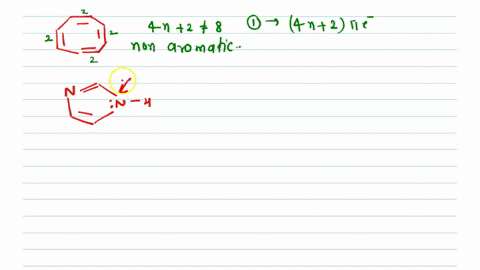 2
2 2
2
4n+2 ≠ 8
non aromatic.
① → (4n+2) πe⁻
N
:N-H